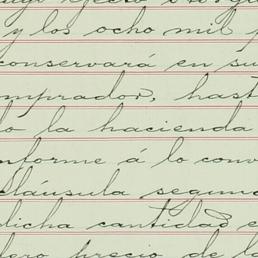 y los ocho mil
conservará en su
mprador, hast
lo la hacienda
nforme á lo conv
cláusula segun
dicha cantidad e
precio de l